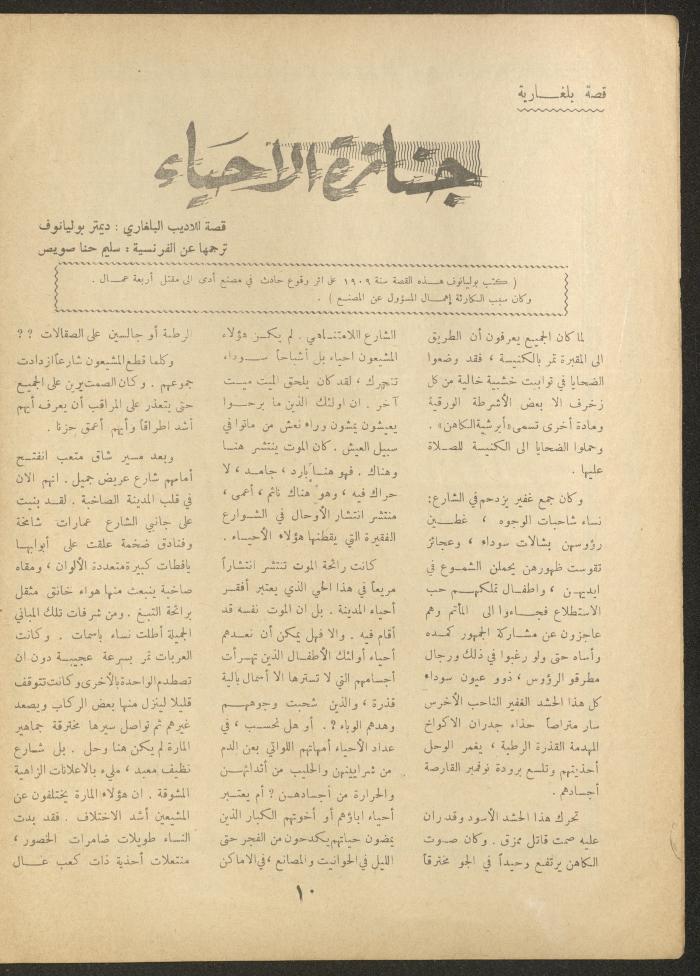 قصة بلغـــارية
جنازة الاحياء
قصة للاديب البلغاري : ديمتر بوليانوف
ترجمها عن الفرنسية : سليم حنا صويص
( كتب بوليانوف هـــذه القصة سنة ١٩٠٩ على اثر وقوع حادث في مصنع أدى الى مقتل أربعة عمـــال .
وكان سبب الكارثة إهمـــال المسؤول عن المصنع ) .
لما كان الجميع يعرفون أن الطريق
الى المقبرة تمر بالكنيسة ، فقد وضعوا
الضحايا في توابيت خشبية خالية من كل
زخرف الا بعض الأشرطة الورقية
ومادة أخرى تسمى «أبرشية الكاهن» .
وحملوا الضحايا الى الكنيسة للصـلاة
عليها .
وكان جمع غفير يزدحم في الشارع:
نساء شاحبات الوجوه ، غطـــين
رؤوسهن بشالات سوداء ، وعجائز
تقوست ظهورهن يحملن الشمـوع في
ايديهـن ، واطفـال تملكهـم حب
الاستطلاع فجـاءوا الى المأتم وهم
عاجزون عن مشاركة الجمهور كمـده
وأساه حتى ولو رغبوا في ذلك ورجال
مطرقو الرؤوس ، ذوو عيون سوداء
كل هذا الحشد الغفير الناحب الأخرس
سار متراصاً حذاء جدران الاكواخ
المهدمة القذرة الرطبة ، يغمر الوحل
أحذيتهم وتلسع برودة نوفمبر القارصة
أجسادهم .
تحرك هذا الحشد الأسود وقد ران
عليه صمت قاتل ممزق . وكان صـوت
الكاهن يرتفع وحيداً في الجو مخترقاً
الشارع اللامتنـاهي . لم يكـن هؤلاء
المشيعون احياء بل أشباحاً ســوداء
تتحرك ، لقد كان يلحق الميت ميـت
آخر . ان اولئك الذين ما برحـــوا
يعيشون يمشون وراء نعش من ماتوا في
سبيل العيش . كان الموت ينتشر هنـا
وهناك . فهو هنـا بارد ، جامـد ، لا
حراك فيه ، وهو هناك نائم ، أعمى ،
منتشر انتشار الأوحال في الشـوارع
الفقيرة التي يقطنها هؤلاء الأحيـاء .
كانت رائحة الموت تنتشر انتشاراً
مريعاً في هذا الحي الذي يعتبر أفقـر
أحياء المدينة . بل ان الموت نفسه قد
أقام فيه . والا فهل يمكن أن نعـدهم
أحياء أولئك الأطفـال الذين تهـرأت
أجسامهم التي لا تسترها الا أسمال بالية
قذرة ، والذين شحبت وجوههـم
وهدهم الوباء ؟ . أو هل نحسب ، في
عداد الأحياء أمهاتهم اللواتي بعن الدم
من شرايينهن والحليب من أثدائهـن
والحرارة من أجسادهـن ? أم يعتـبر
أحياء اباؤهم أو أخوتهم الكبار الذين
يمضون حياتهم يكدحون من الفجر حتى
الليل في الحوانيت والمصانع ، في الاماكن
الرطبة أو جالسين على الصقالات ؟؟
وكلما قطع المشيعون شارعاً ازدادت
جموعهم . وكان الصمت يرين على الجميع
حتى يتعذر على المراقب أن يعرف أيهم
أشد اطراقاً وأيهم أعمق حزنا .
وبعد مسير شاق متعب انفتـح
أمامهم شارع عريض جميل . انهم الان
في قلب المدينة الصاخبة . لقـد بنيت
على جانبي الشارع عمارات شامخة
وفنادق ضخمة علقت على أبوابهـا
يافطات كبيرة متعددة الألوان ، ومقاه
صاخبة ينبعث منها هواء خانق مثقل
برائحة التبغ . ومن شرفات تلك المباني
الجميلة أطلت نساء باسمات . وكانت
العربات تمر بسرعة عجيبـة دون ان
تصطدم الواحدة بالأخرى وكانت تتوقف
قليلا لينزل منها بعض الركاب ويصعد
غيرهم ثم تواصل سيرها مخترقة جماهير
المارة لم يكن هنا وحل . بل شـارع
نظيف معبد ، مليء بالاعلانات الزاهية
المشوقة . ان هؤلاء المارة يختلفون عن
المشيعين أشد الاختلاف . فقد بدت
النساء طويلات ضامرات الخصور ،
منتعلات أحذية ذات كعب عـــال
١٠